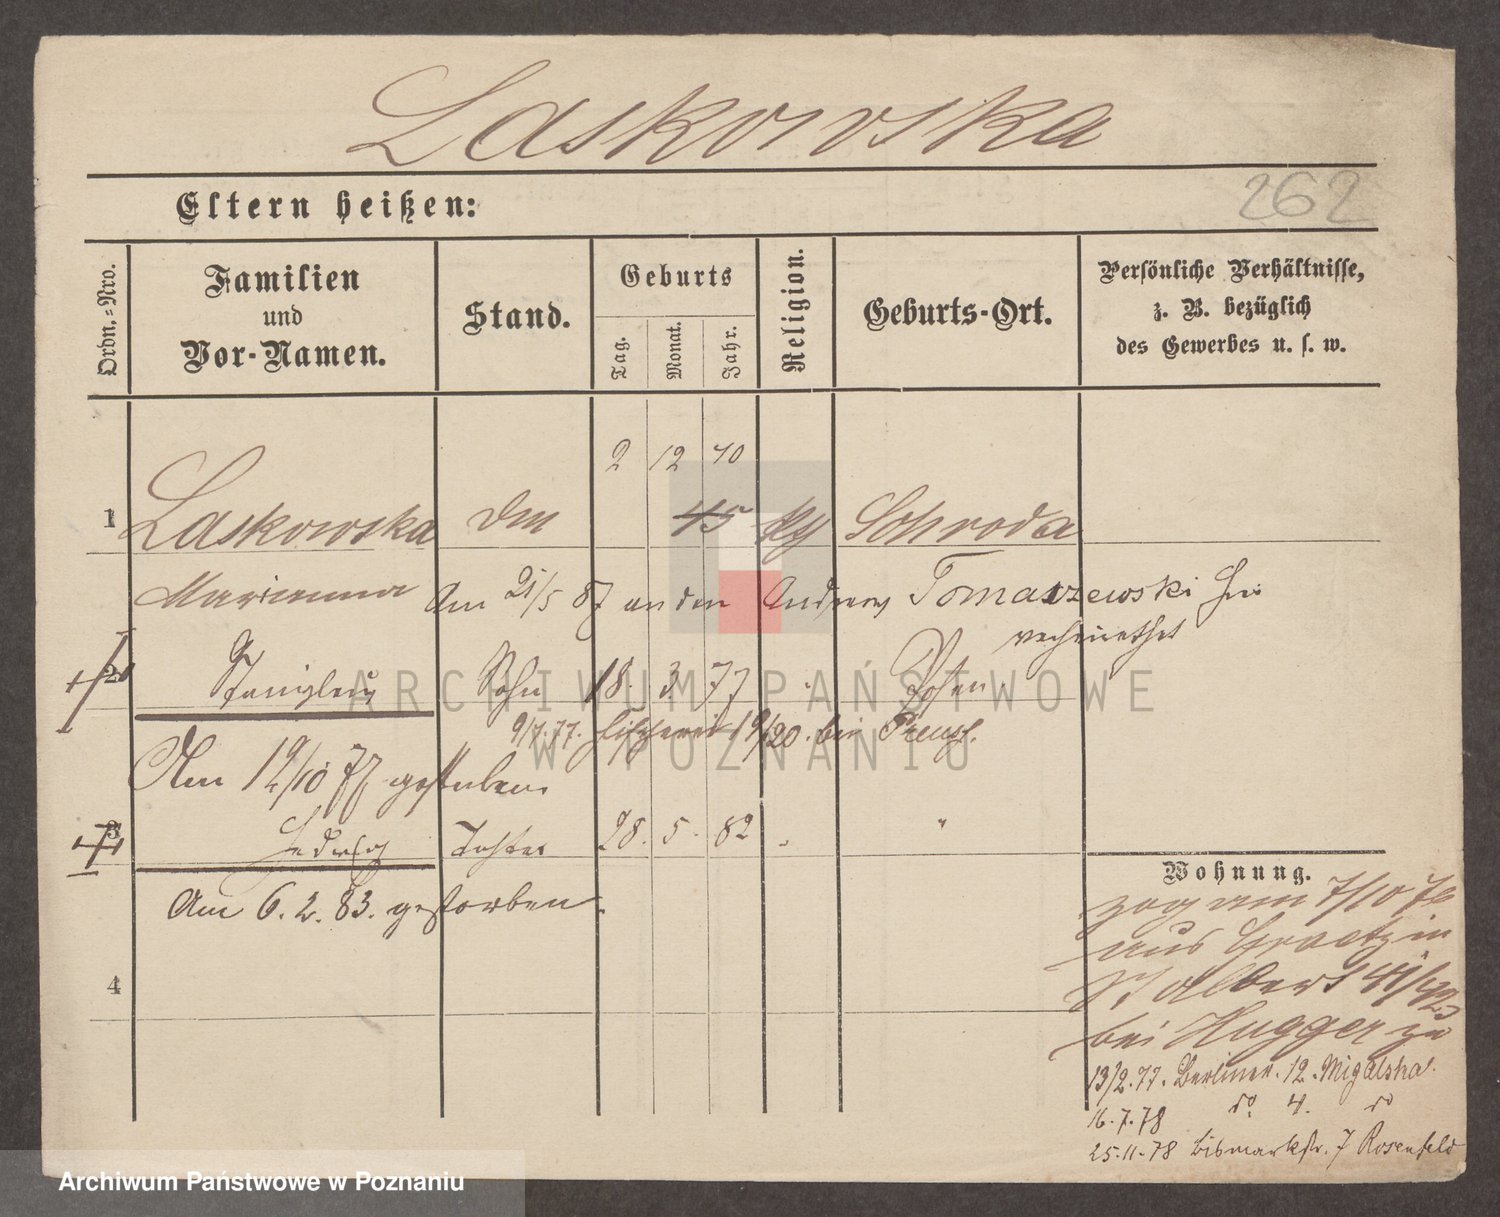 Laskowska
262
Eltern heißen:
Ordn.-Nro.
Familien
und
Vor-Namen.
Stand.
Geburts
Tag.
Monat.
Jahr.
Religion.
Geburts-Ort.
Persönliche Verhältnisse,
z. B. bezüglich
des Gewerbes u. s. w.
2 12 40
1 Laskowska 45 Schroda
Marianna Am 21/5 87 an den Andreas Tomaszewski hier
verheirathet
2 Stanislaus Sohn 18. 3. 77 Posen
9/7.77. 19/20. bei
Am 19/10 77 gestorben
3 Hedwig Tochter 28. 5. 82 "
Am 6. 2. 83. gestorben.
4
Wohnung.
zog am 7/10 76
aus Graetz in
St Adalbert 41/42
bei Hugger zu
13/2.77. Berliner. 12. Migalska.
16.7.78 do 4. do
25.11.78 Bismarkstr. 7 Rosenfeld
ARCHIWUM PAŃSTWOWE
W POZNANIU
Archiwum Państwowe w Poznaniu